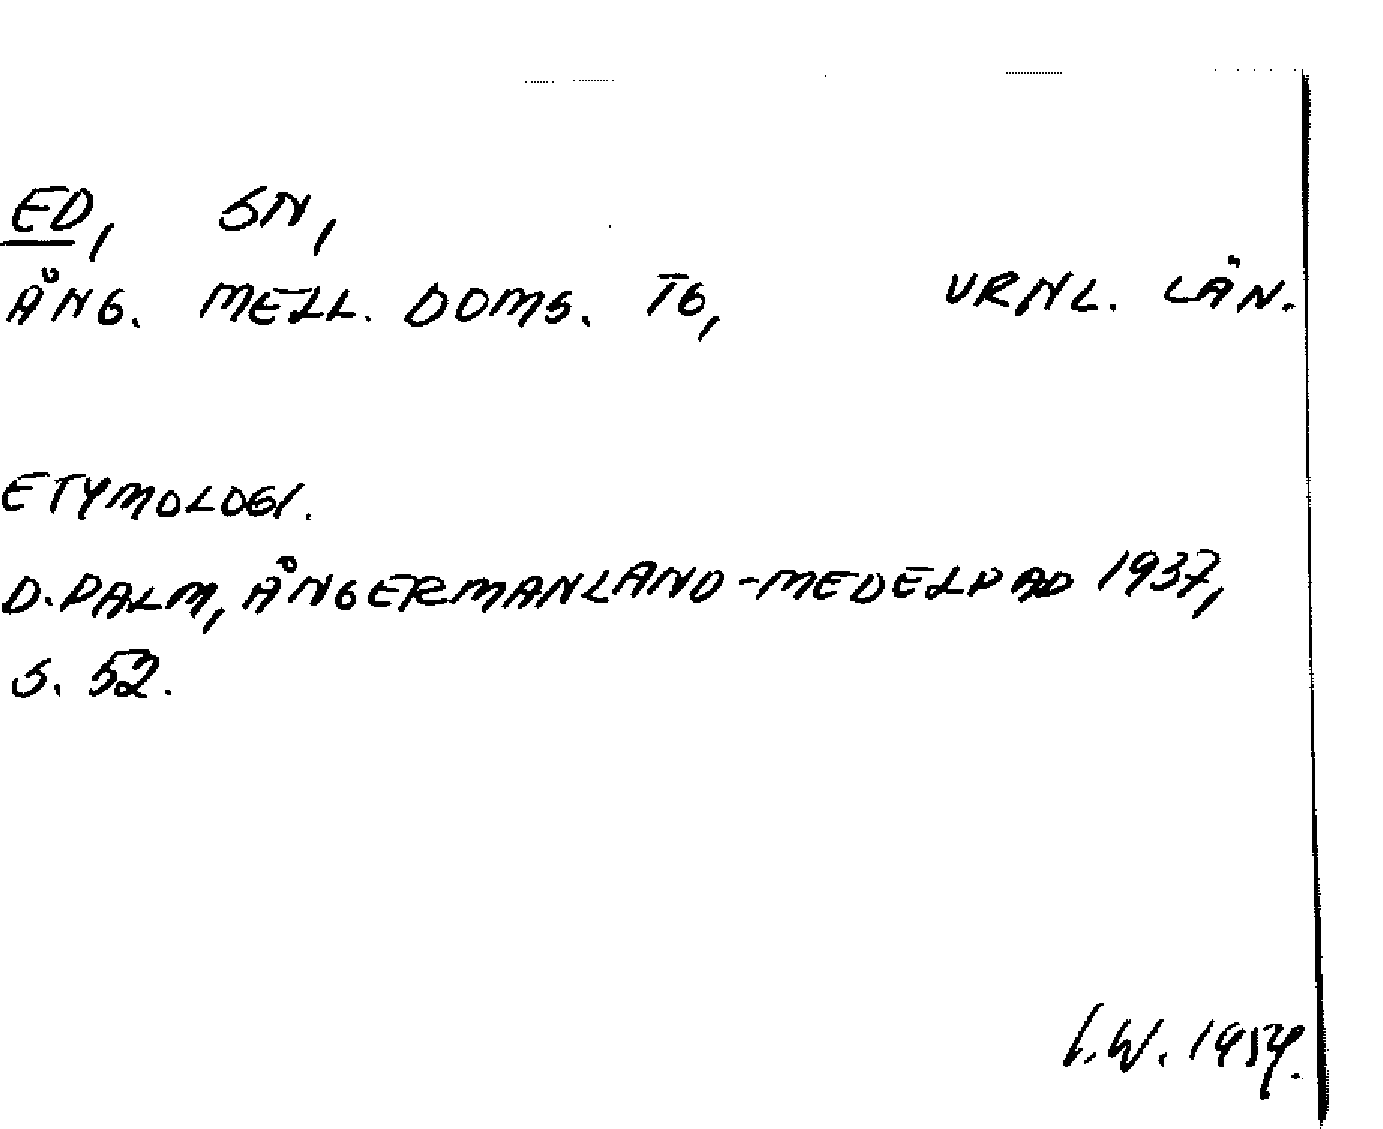 ED, SN,
ÅNG. MELL. DOMS. TG, VRNL. LÄN.
ETYMOLOGI.
D. PALM, ÅNGERMANLAND-MEDELPAD 1937,
S. 52.
I.W. 1954.